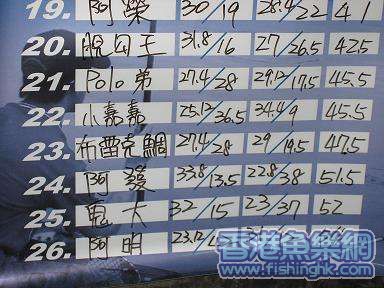 19. 阿榮 30/19 28.4/22 41
20. 脫勾王 31.8/16 27/26.5 42.5
21. Polo弟 27.4/28 29.12/17.5 45.5
22. 小嘉嘉 25.12/36.5 34.4/9 45.5
23. 布雷克鯛 27.4/28 29/19.5 47.5
24. 阿發 33.8/13.5 22.8/38 51.5
25. 鬼大 32/15 23/37 52
26. 阿明 23.12/
香港魚樂網
www.fishinghk.com